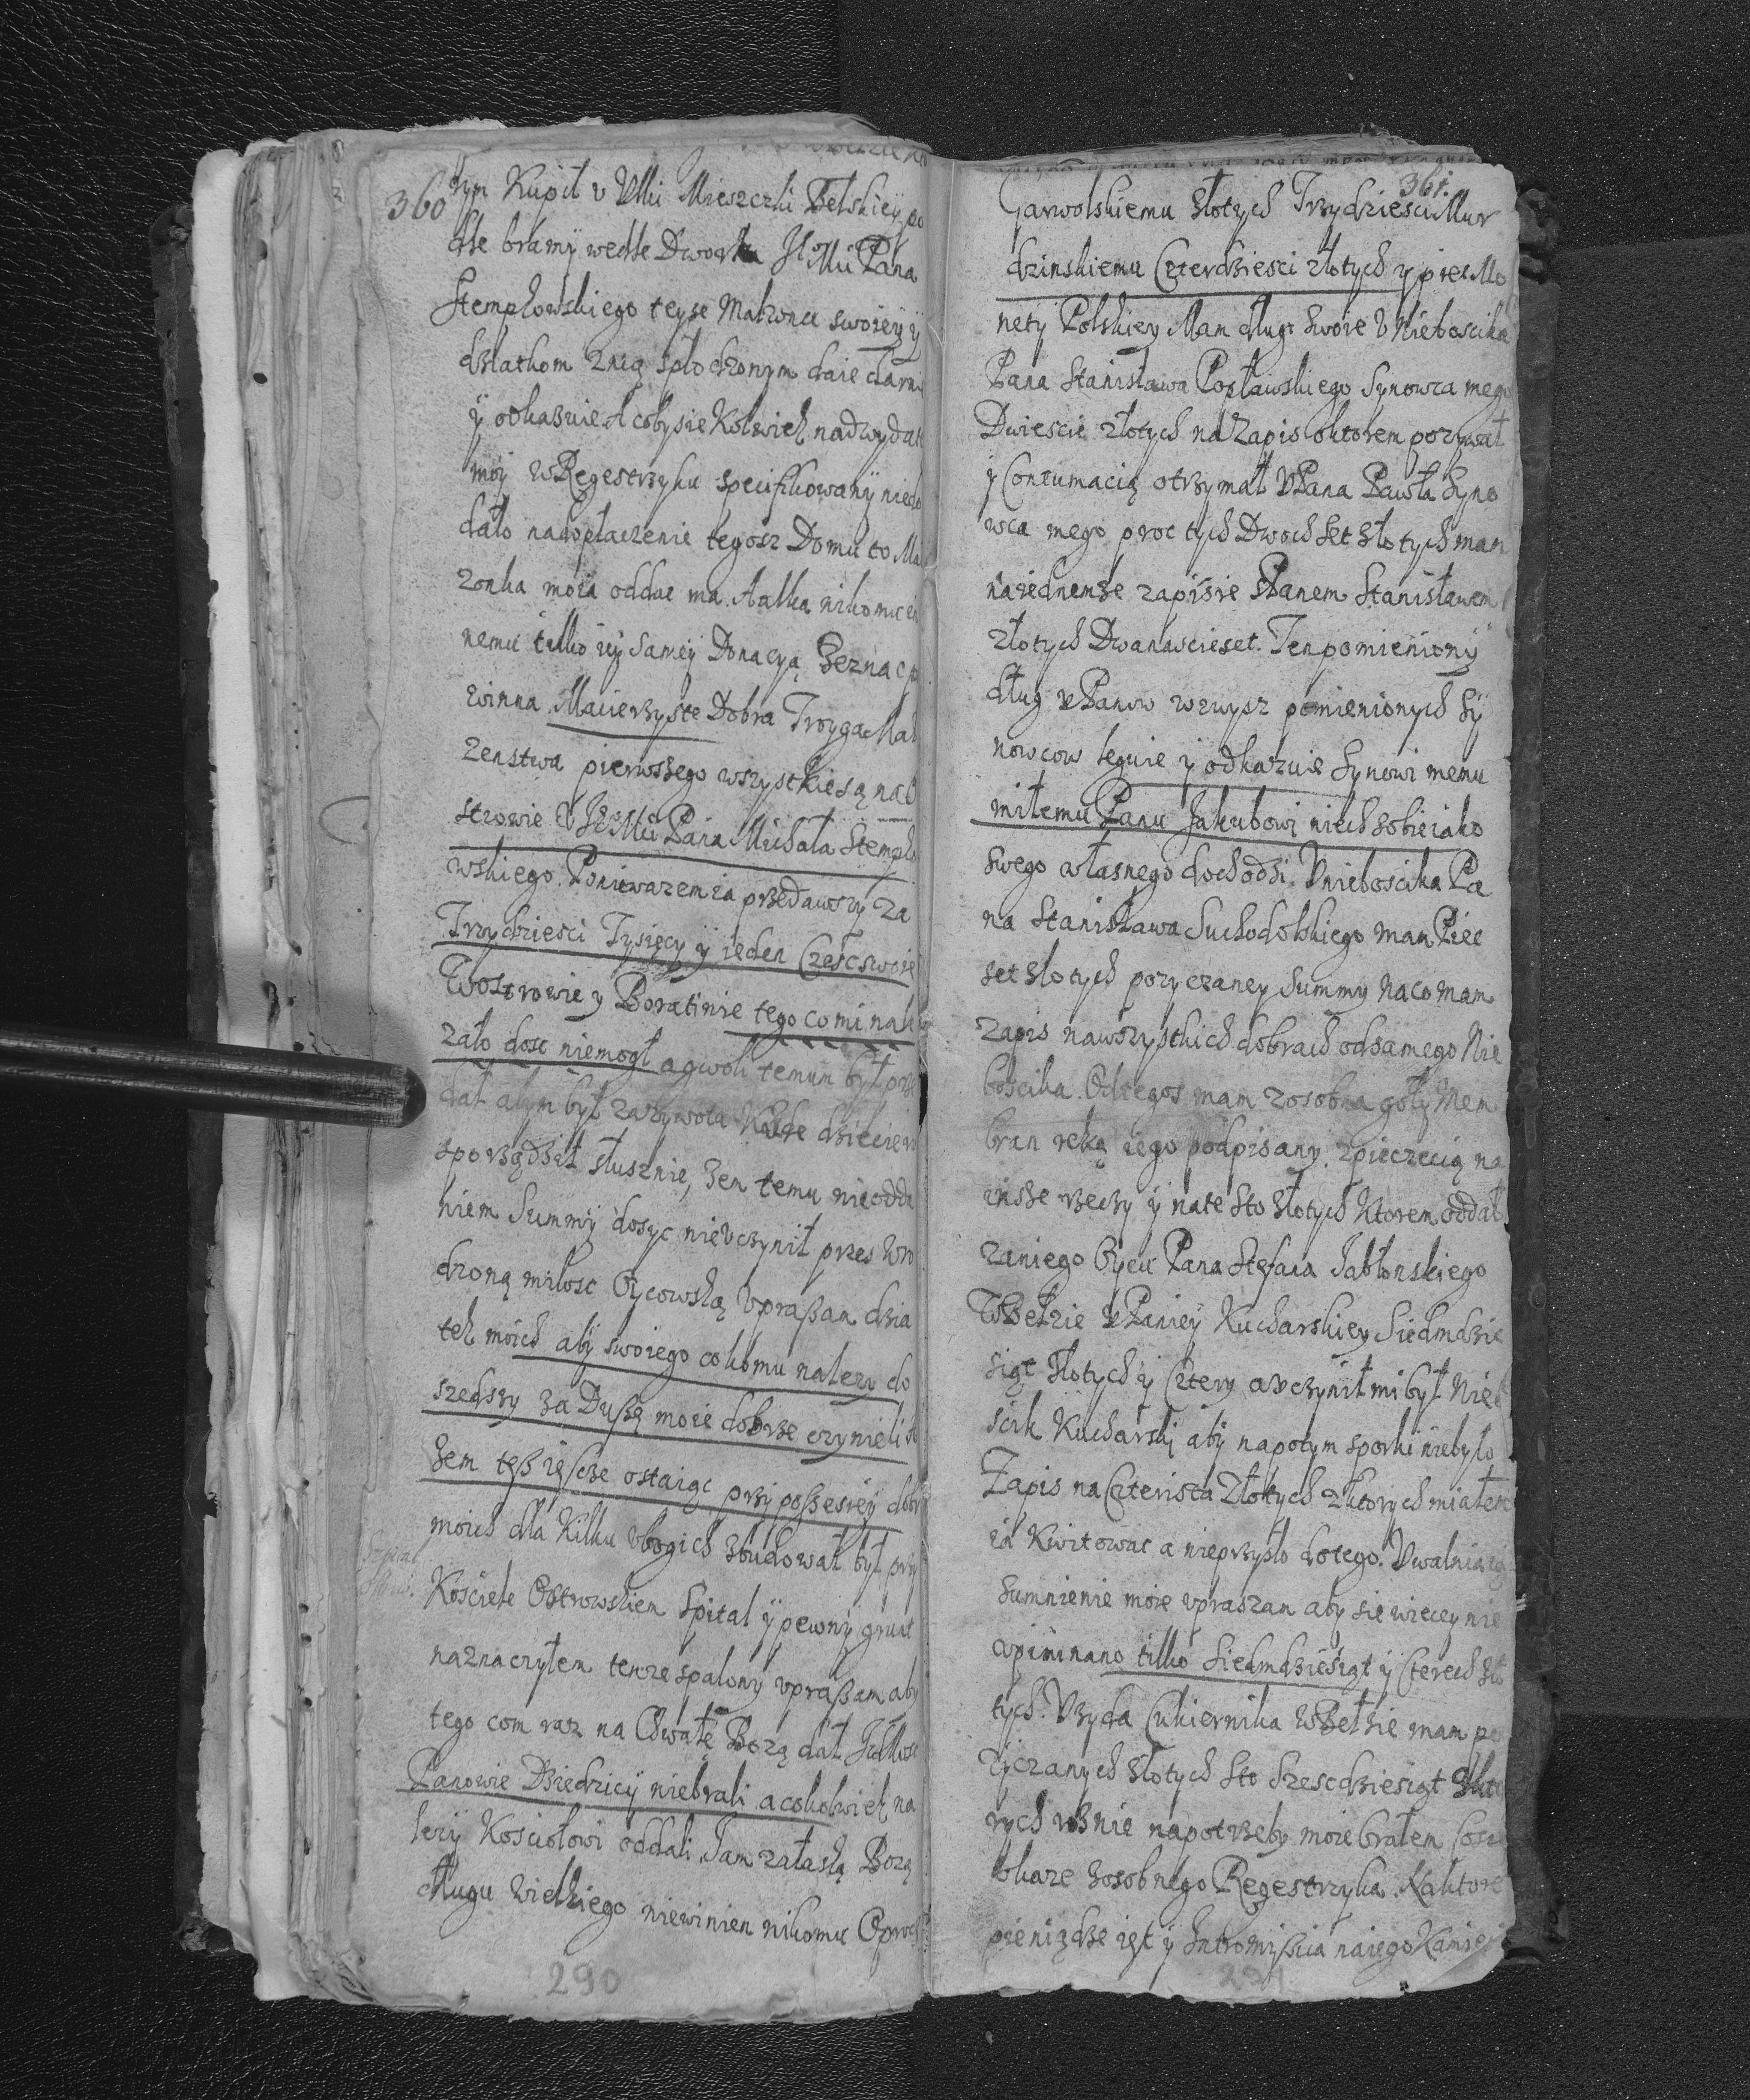 360
rym Kupił v Ulii Mieszczki Bełskiey po
dle bramÿ wedle Dworku JE Mci Pana
Stempkowskiego teyże Małżonce swoiey ÿ
dziatkom z nią spłodzonym daie daruie
ÿ odkazuie A cobysie Kolwiek nad wydatek
moÿ w Regestrzyku specifikowanÿ niedo
dało na dopłaczenie tegosz Domu to Mał
zonka moia oddac ma A alka nikomu in
nemu tilko iey Sameÿ Donacyą Zeznac po
winna Macierzyste Dobra Troyga Mał
zenstwa pierwszego wszystkie są na O
strowie U JE Mci Pana Michała Stempko
wskiego. Poniewazem ia przedawszy za
Trzydziesci Tysięcy ÿ ieden Częsc swoię
W Ostrowie y Boratinie tego co mi nale
zało dosc niemogł a gwoli temum był prze
dał abym był za zywota Kazde dziecie w
sporządził słusznie, Zem temu nieodda
niem Summÿ dosyc nieuczynił przez Wro
dzoną miłosc Oÿcowską Upraßam dzia
tek moich abÿ swoiego co komu nalezy do
szedszy za Dußę moię dobrze czynieli
Zem teß ieſcze ostaiąc przÿ poßessieÿ dobr
moich dla Kilku Ubogich zbudował był przy
Kosciele Ostrowskiem Szpital ÿ pewnÿ grunt
naznaczyłem tenze spalony upraßam aby
tego com raz na Chwałę Bozą dał Ich Mosc
Panowie Dziedzicÿ niebrali a cokolwiek na
lezÿ Kosciołowi oddali Jam załaską Bozą
długu Wielkiego niewinien nikomu Oprocz
290
361.
Garwolskiemu złotych Trzydziesci Mur
dzinskiemu Czterdziesci złotych y pięc Mo
netÿ Polskiey Mam dług swoie U Nieboscika
Pana Stanisława Popławskiego Synowca mego
Dwiescie złotych na Zapis oktorem pozywał
ÿ Contumacią otrzymał U Pana Pawła Syno
wca mego procz tych Dwoch set złotych mam
na iednemze zapisie S Panem Stanisławem
złotych Dwanascieset. Ten pomienionÿ
dług u Panow wzwysz pomienionych Sÿ
nowcow leguie ÿ odkazuie Synowi memu
miłemu Panu Jakubowi niech sobie iako
swego własnego dochodzi. U nieboscika Pa
na Stanisława Suchodolskiego mam Pięc
set złotych pozyczaney Summy na co mam
Zapis nawszystkich dobrach od samego Nie
boscika Od tegos mam zosobna gołÿ Mem
bran ręką iego podpisany. z pieczecią na
insze rzeczy ÿ nate sto złotych Ktorem oddał
zaniego Oÿcu Pana Stefana Jabłonskiego
W Bełzie U Panieÿ Kucharskiey Siedmdzie
siąt złotych ÿ Cztery a uczynił mi był Niebo
scik Kucharskÿ abÿ napotym sporki niebyło
Zapis na Czterista Złotych z ktorych miałem
ia Kwitowac a nieprzyszło do tego. Uwalniaiąc
Sumnienie moie upraszam aby sie wiecey nie
upiminano tilko Siedmdziesiąt ÿ Cterech zło
tych. U zyda Cukiernika W Bełzie mam po
zÿczanych złotych sto Szescdziesiąt z kto
rych u znie napotrzeby moie brałem Co sie
okaze z osobnego Regestrzyka. Na ktore
pieniądze iest ÿ Intromißia na iego Kamie
291